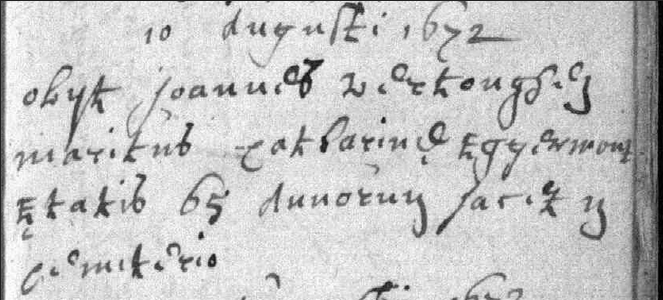 10 Augusti 1672
obyt Joannes Verhongsen
maritus Catharinę Egyermont
ętatis 65 Annorum Jacet in
cemiterio